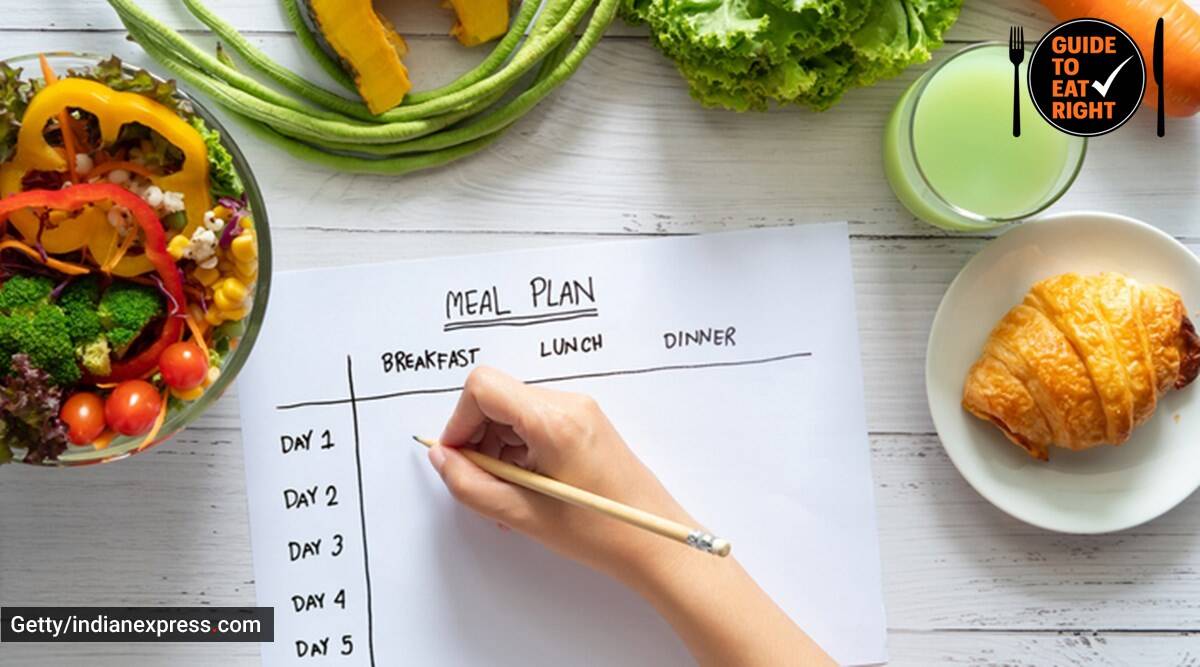 GUIDE
TO
EAT
RIGHT
MEAL PLAN
BREAKFAST LUNCH DINNER
DAY 1
DAY 2
DAY 3
DAY 4
DAY 5
Getty/indianexpress.com